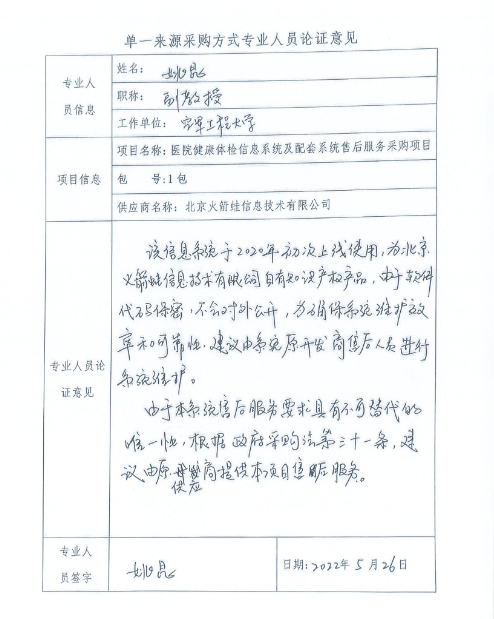 单一来源采购方式专业人员论证意见
专业人
员信息
姓名：姚昆
职称：副教授
工作单位：空军工程大学
项目信息
项目名称：医院健康体检信息系统及配套系统售后服务采购项目
包 号：1包
供应商名称：北京火箭蛙信息技术有限公司
专业人员论
证意见
该信息系统于2020年初次上线使用，为北京
火箭蛙信息技术有限公司自有知识产权产品，由于软件
代码保密，不会对外公开，为确保系统维护效
率和可靠性，建议由系统原开发商售后人员进行
系统维护。
由于本系统售后服务要求具有不可替代的
唯一性，根据政府采购法第三十一条，建
议由原供应商提供本项目售后服务。
专业人
员签字
姚昆
日期：2022年5月26日